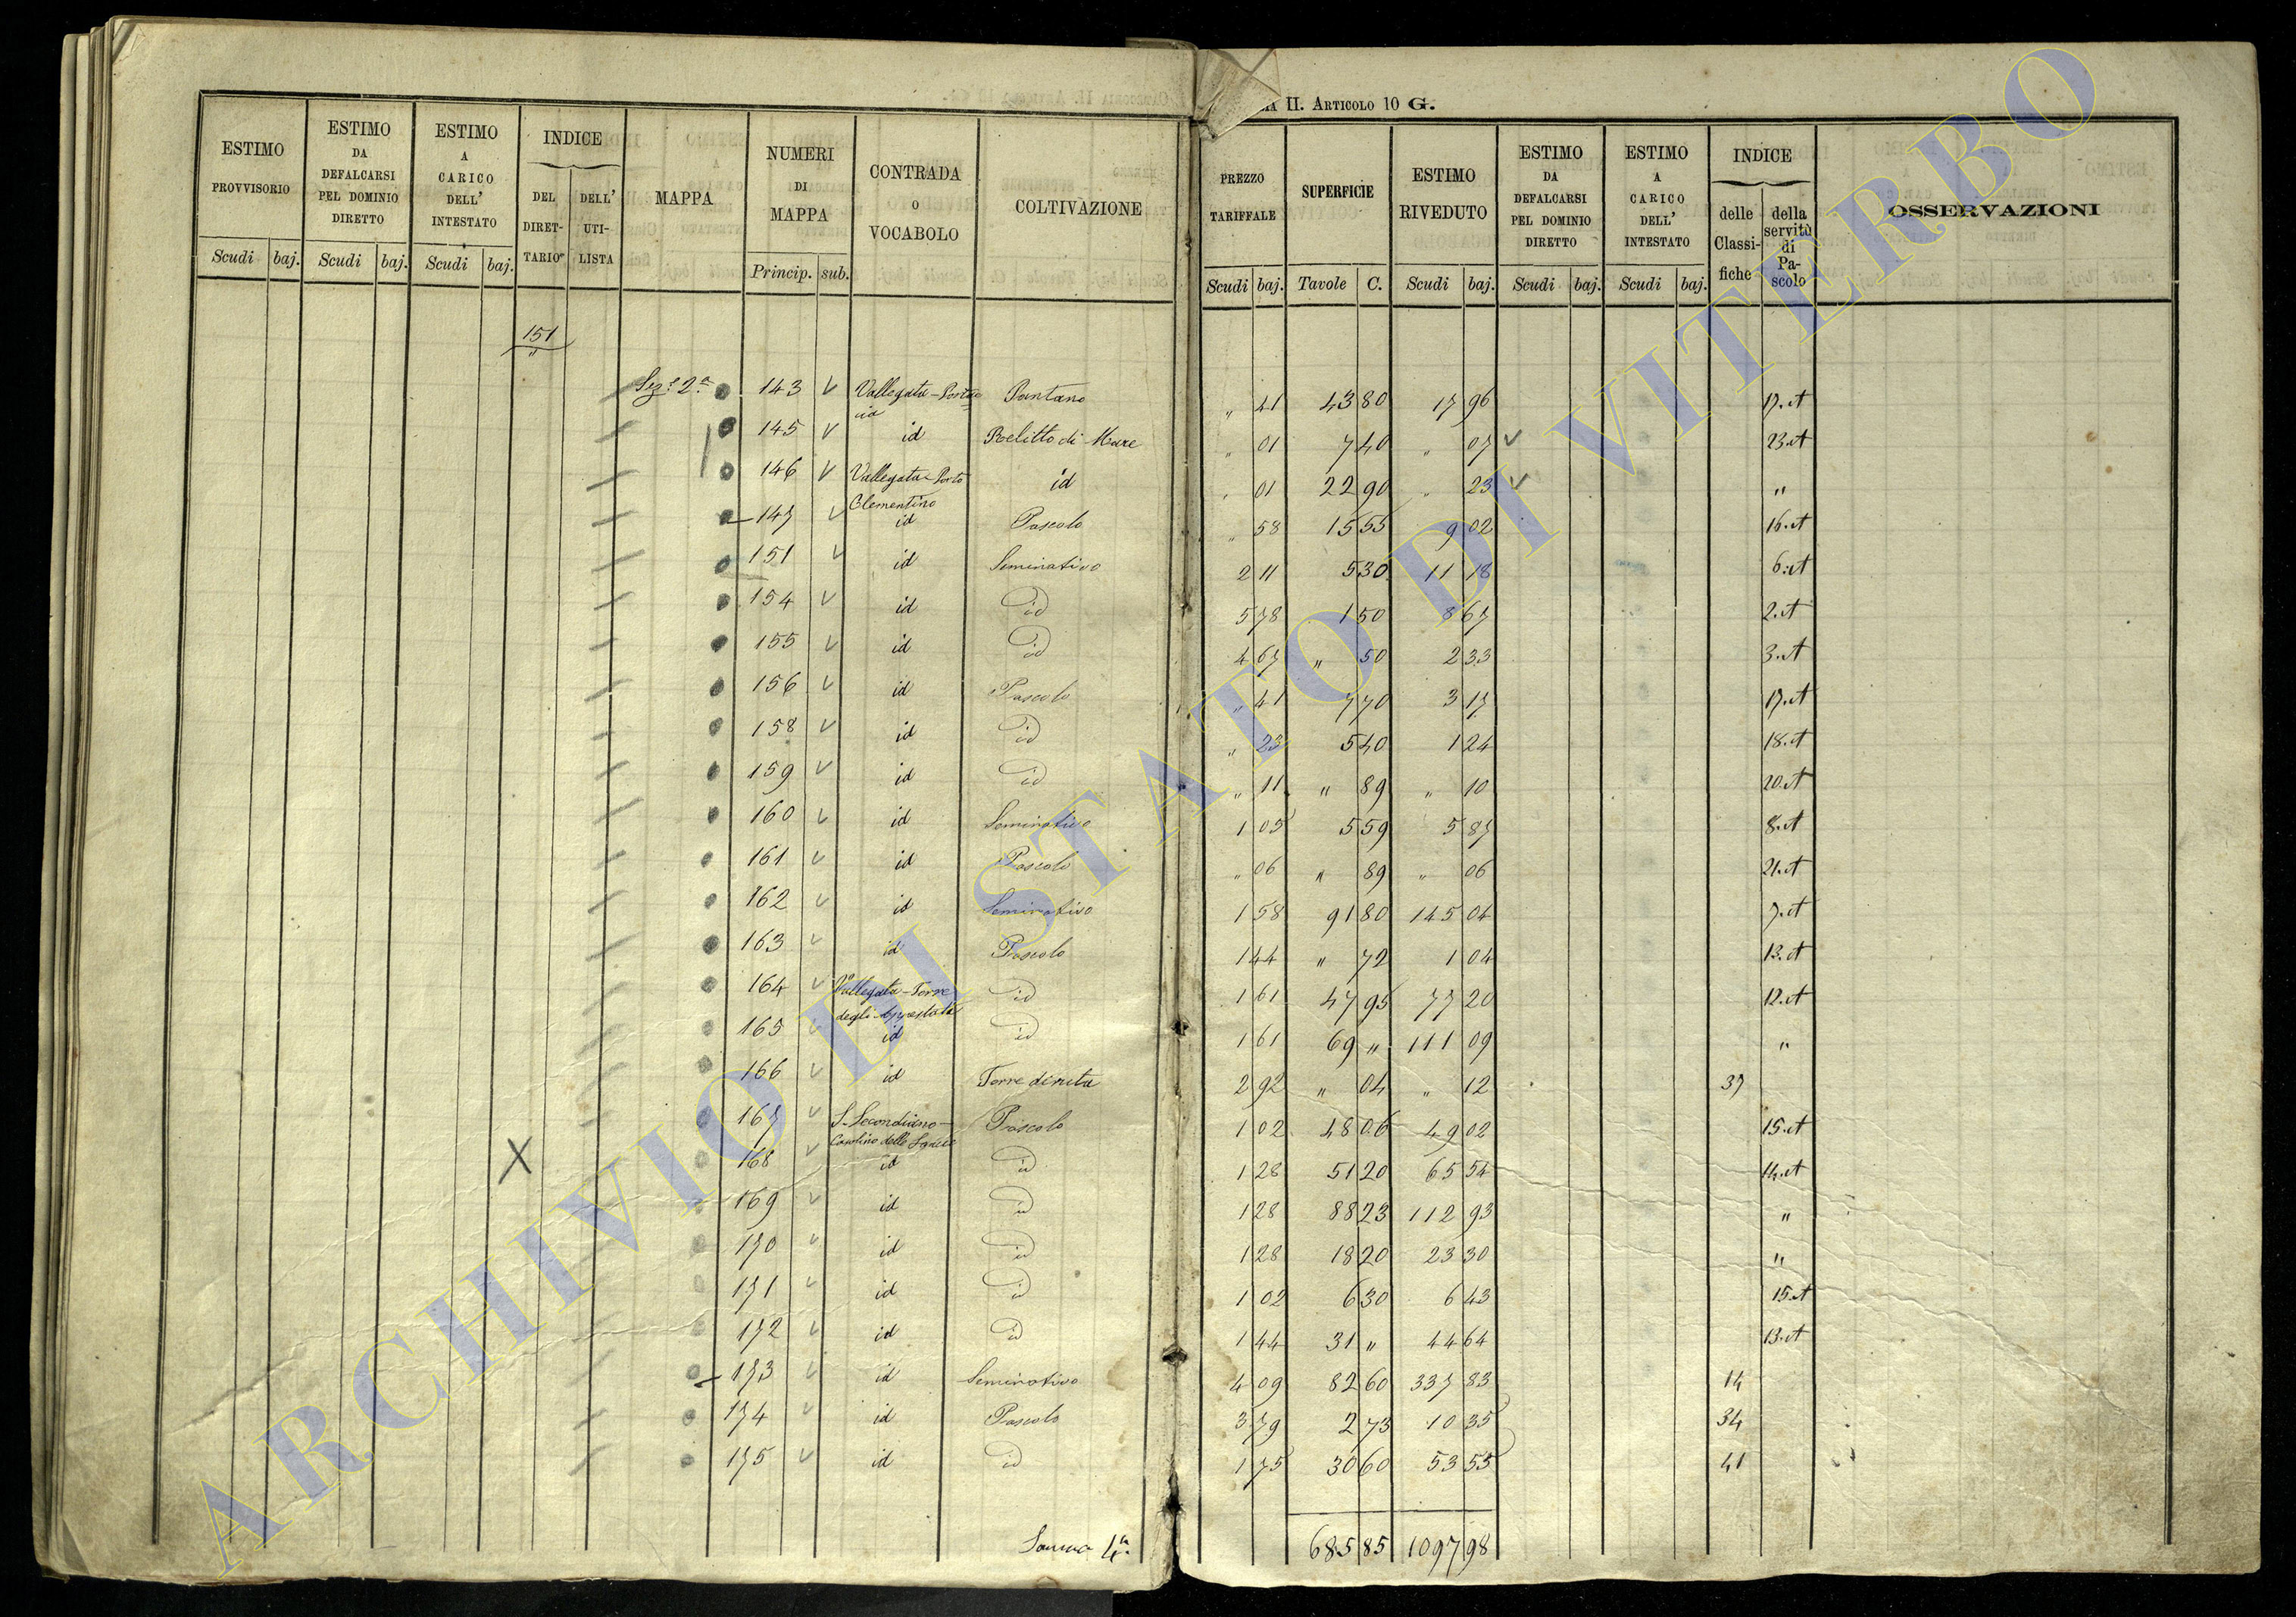 MA II. ARTICOLO 10 G.
ESTIMO PROVVISORIO | ESTIMO DA DEFALCARSI PEL DOMINIO DIRETTO | ESTIMO A CARICO DELL' INTESTATO | INDICE DEL DIRETTARIO | DELL' UTILISTA | MAPPA | NUMERI DI MAPPA | CONTRADA O VOCABOLO | COLTIVAZIONE | PREZZO TARIFFALE | SUPERFICIE | ESTIMO RIVEDUTO | ESTIMO DA DEFALCARSI PEL DOMINIO DIRETTO | ESTIMO A CARICO DELL' INTESTATO | INDICE delle Classifiche | della servitù di Pascolo | OSSERVAZIONI
Scudi baj. Scudi baj. Scudi baj. Princip. sub. Scudi baj. Tavole C. Scudi baj. Scudi baj. Scudi baj.
151
"
Sez.e 2a 143 Vallegata - Porta Pantano " 41 43 80 17 96 17.A
id
145 id Relitto di Mare " 01 7 40 " 07 23.A
146 Vallegata - Porto id " 01 22 90 " 23 "
Clementino
147 id Pascolo " 58 15 55 9 02 16.A
151 id Seminativo 2 11 5 30 11 18 6.A
154 id id 5 78 1 50 8 67 2.A
155 id id 4 67 " 50 2 33 3.A
156 id Pascolo " 41 7 70 3 17 17.A
158 id id " 23 5 40 1 24 18.A
159 id id " 11 " 89 " 10 20.A
160 id Seminativo 1 05 5 59 5 87 8.A
161 id Pascolo " 06 " 89 " 06 21.A
162 id Seminativo 1 58 91 80 145 04 7.A
163 id Pascolo 1 44 " 72 1 04 13.A
164 Vallegata - Torre id 1 61 47 95 77 20 12.A
degli Appestati
165 id id 1 61 69 " 111 09 "
166 id Torre diruta 2 92 " 04 " 12 37
167 S. Secondiano - Pascolo 1 02 48 06 49 02 15.A
Casalino delle
168 id id 1 28 51 20 65 54 14.A
169 id id 1 28 88 23 112 93 "
170 id id 1 28 18 20 23 30 "
171 id id 1 02 6 30 6 43 15.A
172 id id 1 44 31 " 44 64 13.A
173 id Seminativo 4 09 82 60 337 83 14
174 id Pascolo 3 79 2 73 10 35 34
175 id id 1 75 30 60 53 55 41
Somma 4a 685 85 1097 98
ARCHIVIO DI STATO DI VITERBO